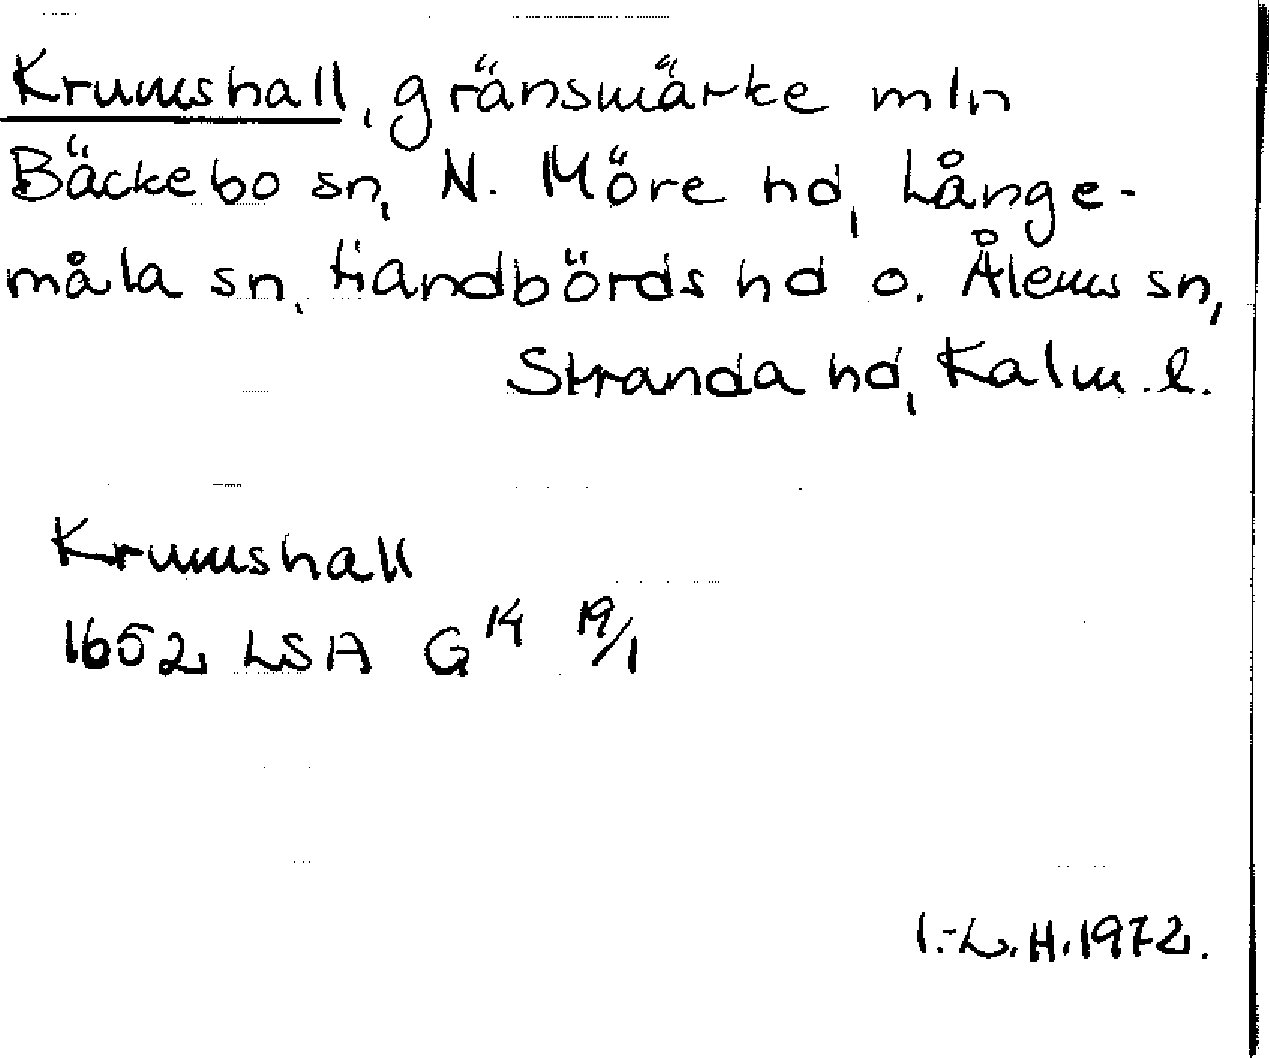 Krumshall, gränsmärke mln
Bäckebo sn, N. Möre hd, Långe-
måla sn, Handbörds hd o. Ålems sn,
Stranda hd, Kalm. l.
Krumshall
1652 LSA G 14 19/1
I.-L.H. 1972.